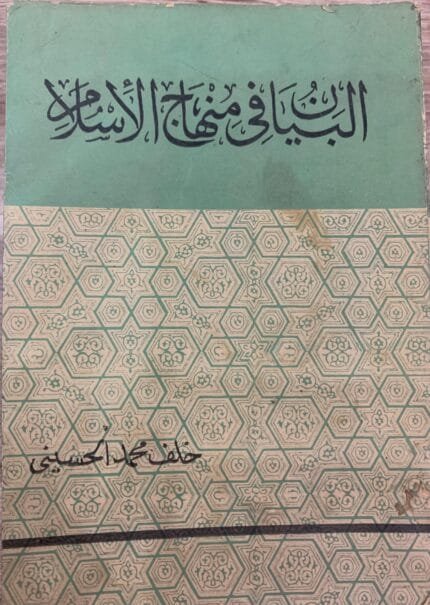 البيان في منهاج الأسلام
خلف محمد الحسيني